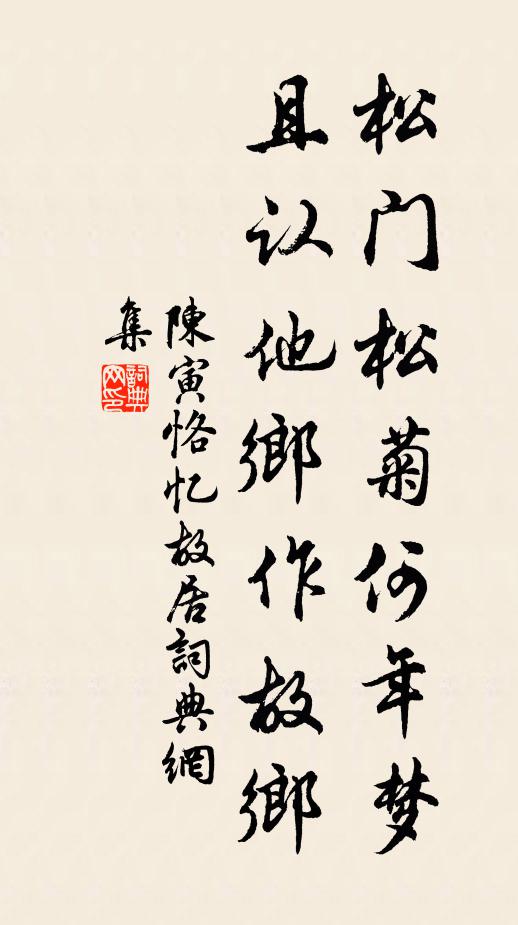 松门松菊何年梦
且认他鄉作故鄉
陳寅恪忆故居詞典網
集
詞典网印